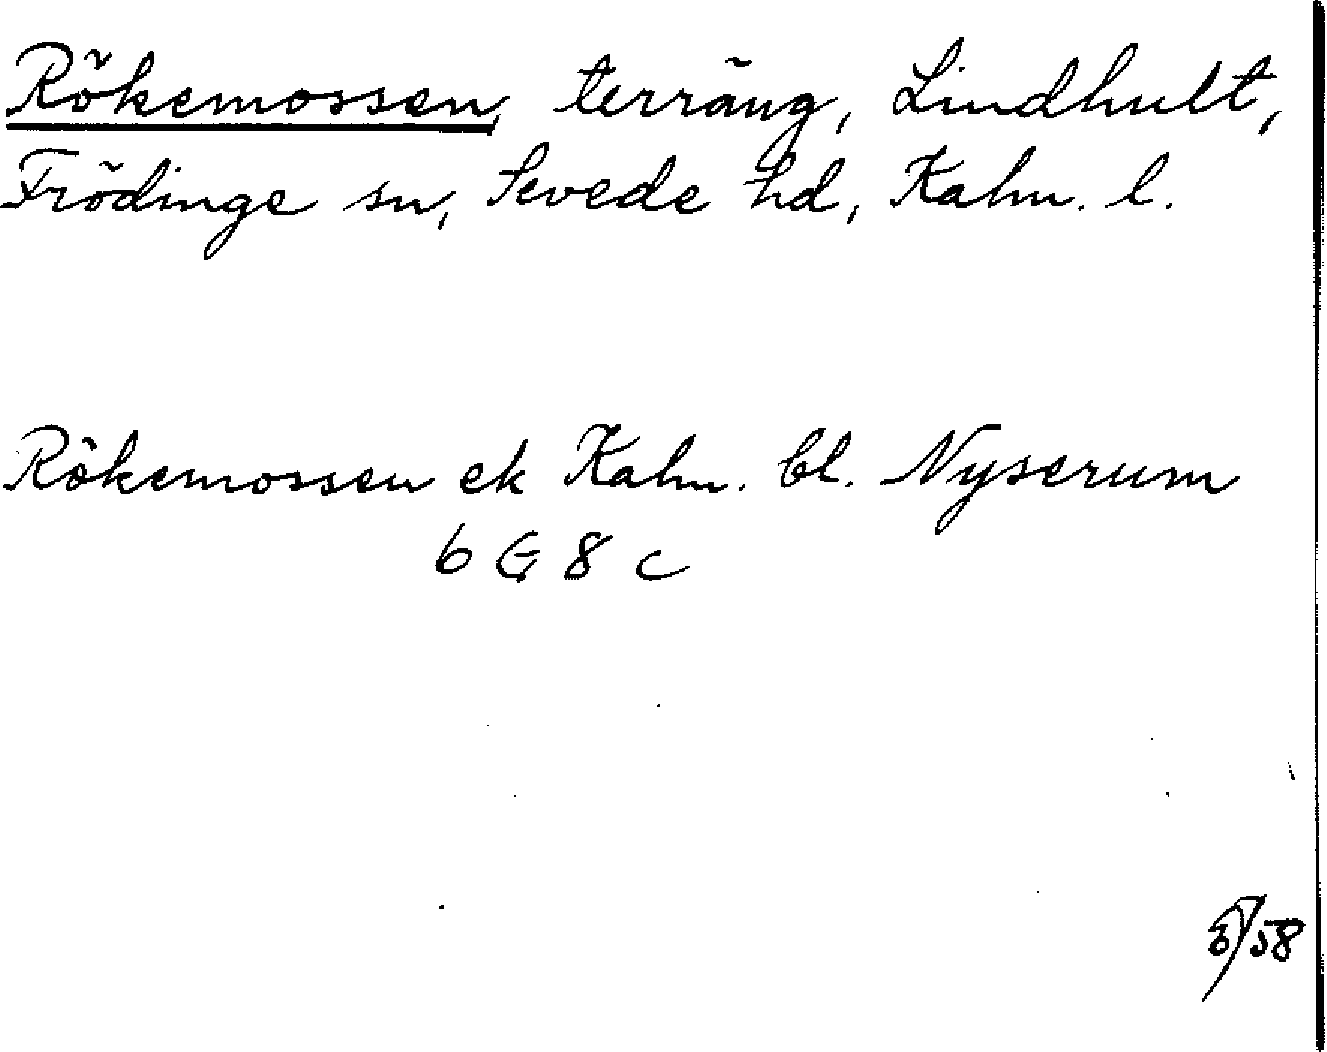 Rökemossen, terräng, Lindhult,
Frödinge sn, Sevede hd, Kalm. l.
Rökemossen ek Kalm. bl. Nyserum
6 G 8 c
/58